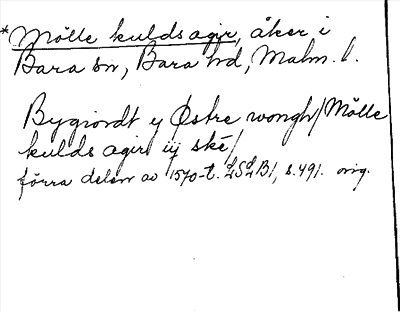 *Mölle kulds agir, åker i
Bara sn, Bara hd, Malm. l.
Bygiordt y Østre wongh/Mölle
kulds agir iij ske/
förra delen av 1570-t. B1, s. 491. orig.